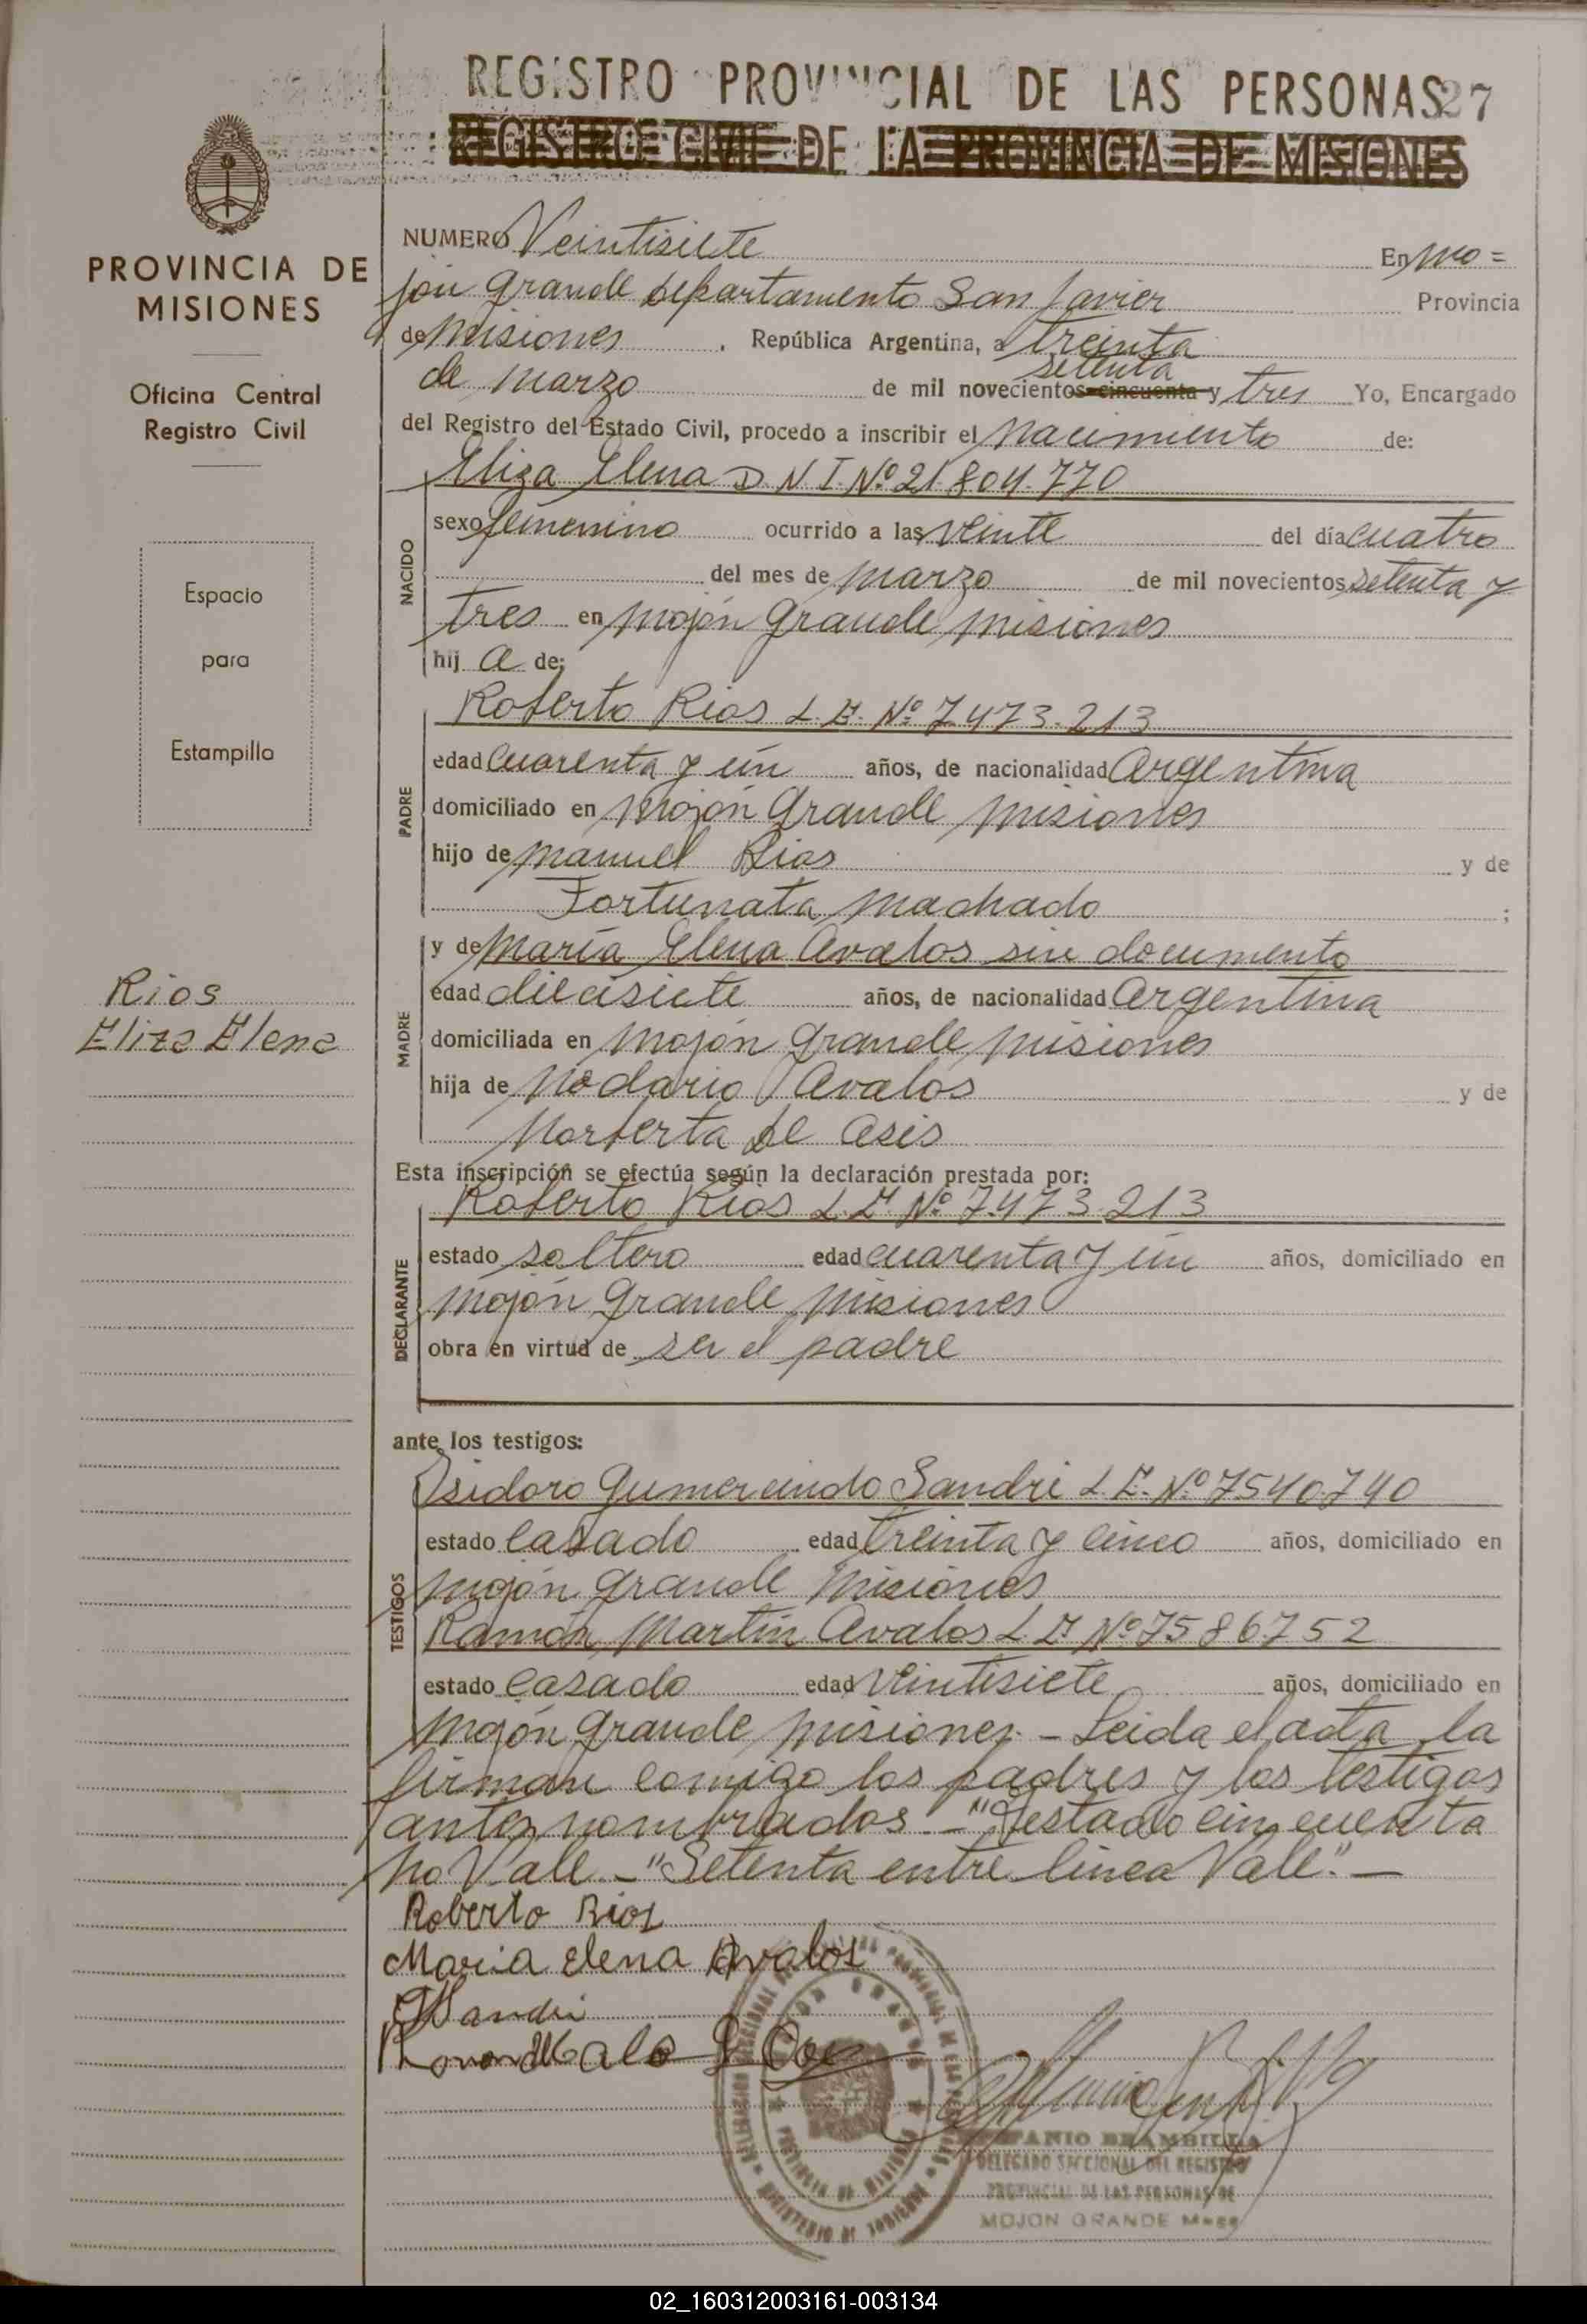 REGISTRO PROVINCIAL DE LAS PERSONAS 27
REGISTRO CIVIL DE LA PROVINCIA DE MISIONES
PROVINCIA DE
MISIONES
Oficina Central
Registro Civil
Espacio
para
Estampilla
Rios
Eliza Elena
NUMERO Veintisiete En Mo=
jón Grande departamento San Javier Provincia
de Misiones, República Argentina, a treinta
setenta
de marzo de mil novecientos cincuenta y tres Yo, Encargado
del Registro del Estado Civil, procedo a inscribir el nacimiento de:
Eliza Elena D.N.I. Nº 21.804.770
NACIDO
sexo femenino ocurrido a las veinte del día cuatro
del mes de marzo de mil novecientos setenta y
tres en Mojón Grande Misiones
hij a de:
Roberto Rios L.E. Nº 7.473.213
PADRE
edad cuarenta y un años, de nacionalidad Argentina
domiciliado en Mojón Grande Misiones
hijo de Manuel Rios y de
Fortunata Machado ;
MADRE
y de María Elena Avalos sin documento
edad diecisiete años, de nacionalidad Argentina
domiciliada en Mojón Grande Misiones
hija de Nodario Avalos y de
Norberta de Asis
Esta inscripción se efectúa según la declaración prestada por:
Roberto Rios L.E. Nº 7.473.213
DECLARANTE
estado soltero edad cuarenta y un años, domiciliado en
Mojón Grande Misiones
obra en virtud de ser el padre
ante los testigos:
Isidoro Gumercindo Sandri L.E. Nº 7540740
TESTIGOS
estado casado edad treinta y cinco años, domiciliado en
Mojón Grande Misiones
Ramón Martín Avalos L.E. Nº 7586752
estado casado edad veintisiete años, domiciliado en
Mojón Grande Misiones.- Leida el acta la
firman comigo los padres y los testigos
antes nombrados.- "Testado cincuenta
no Vale.- "Setenta entre línea Vale".-
Roberto Rios
Maria Elena Avalos
Sandri
BRAMBILLA
DELEGADO SECCIONAL DEL REGISTRO
PROVINCIAL DE LAS PERSONAS DE
MOJON GRANDE Mnes
02_160312003161-003134